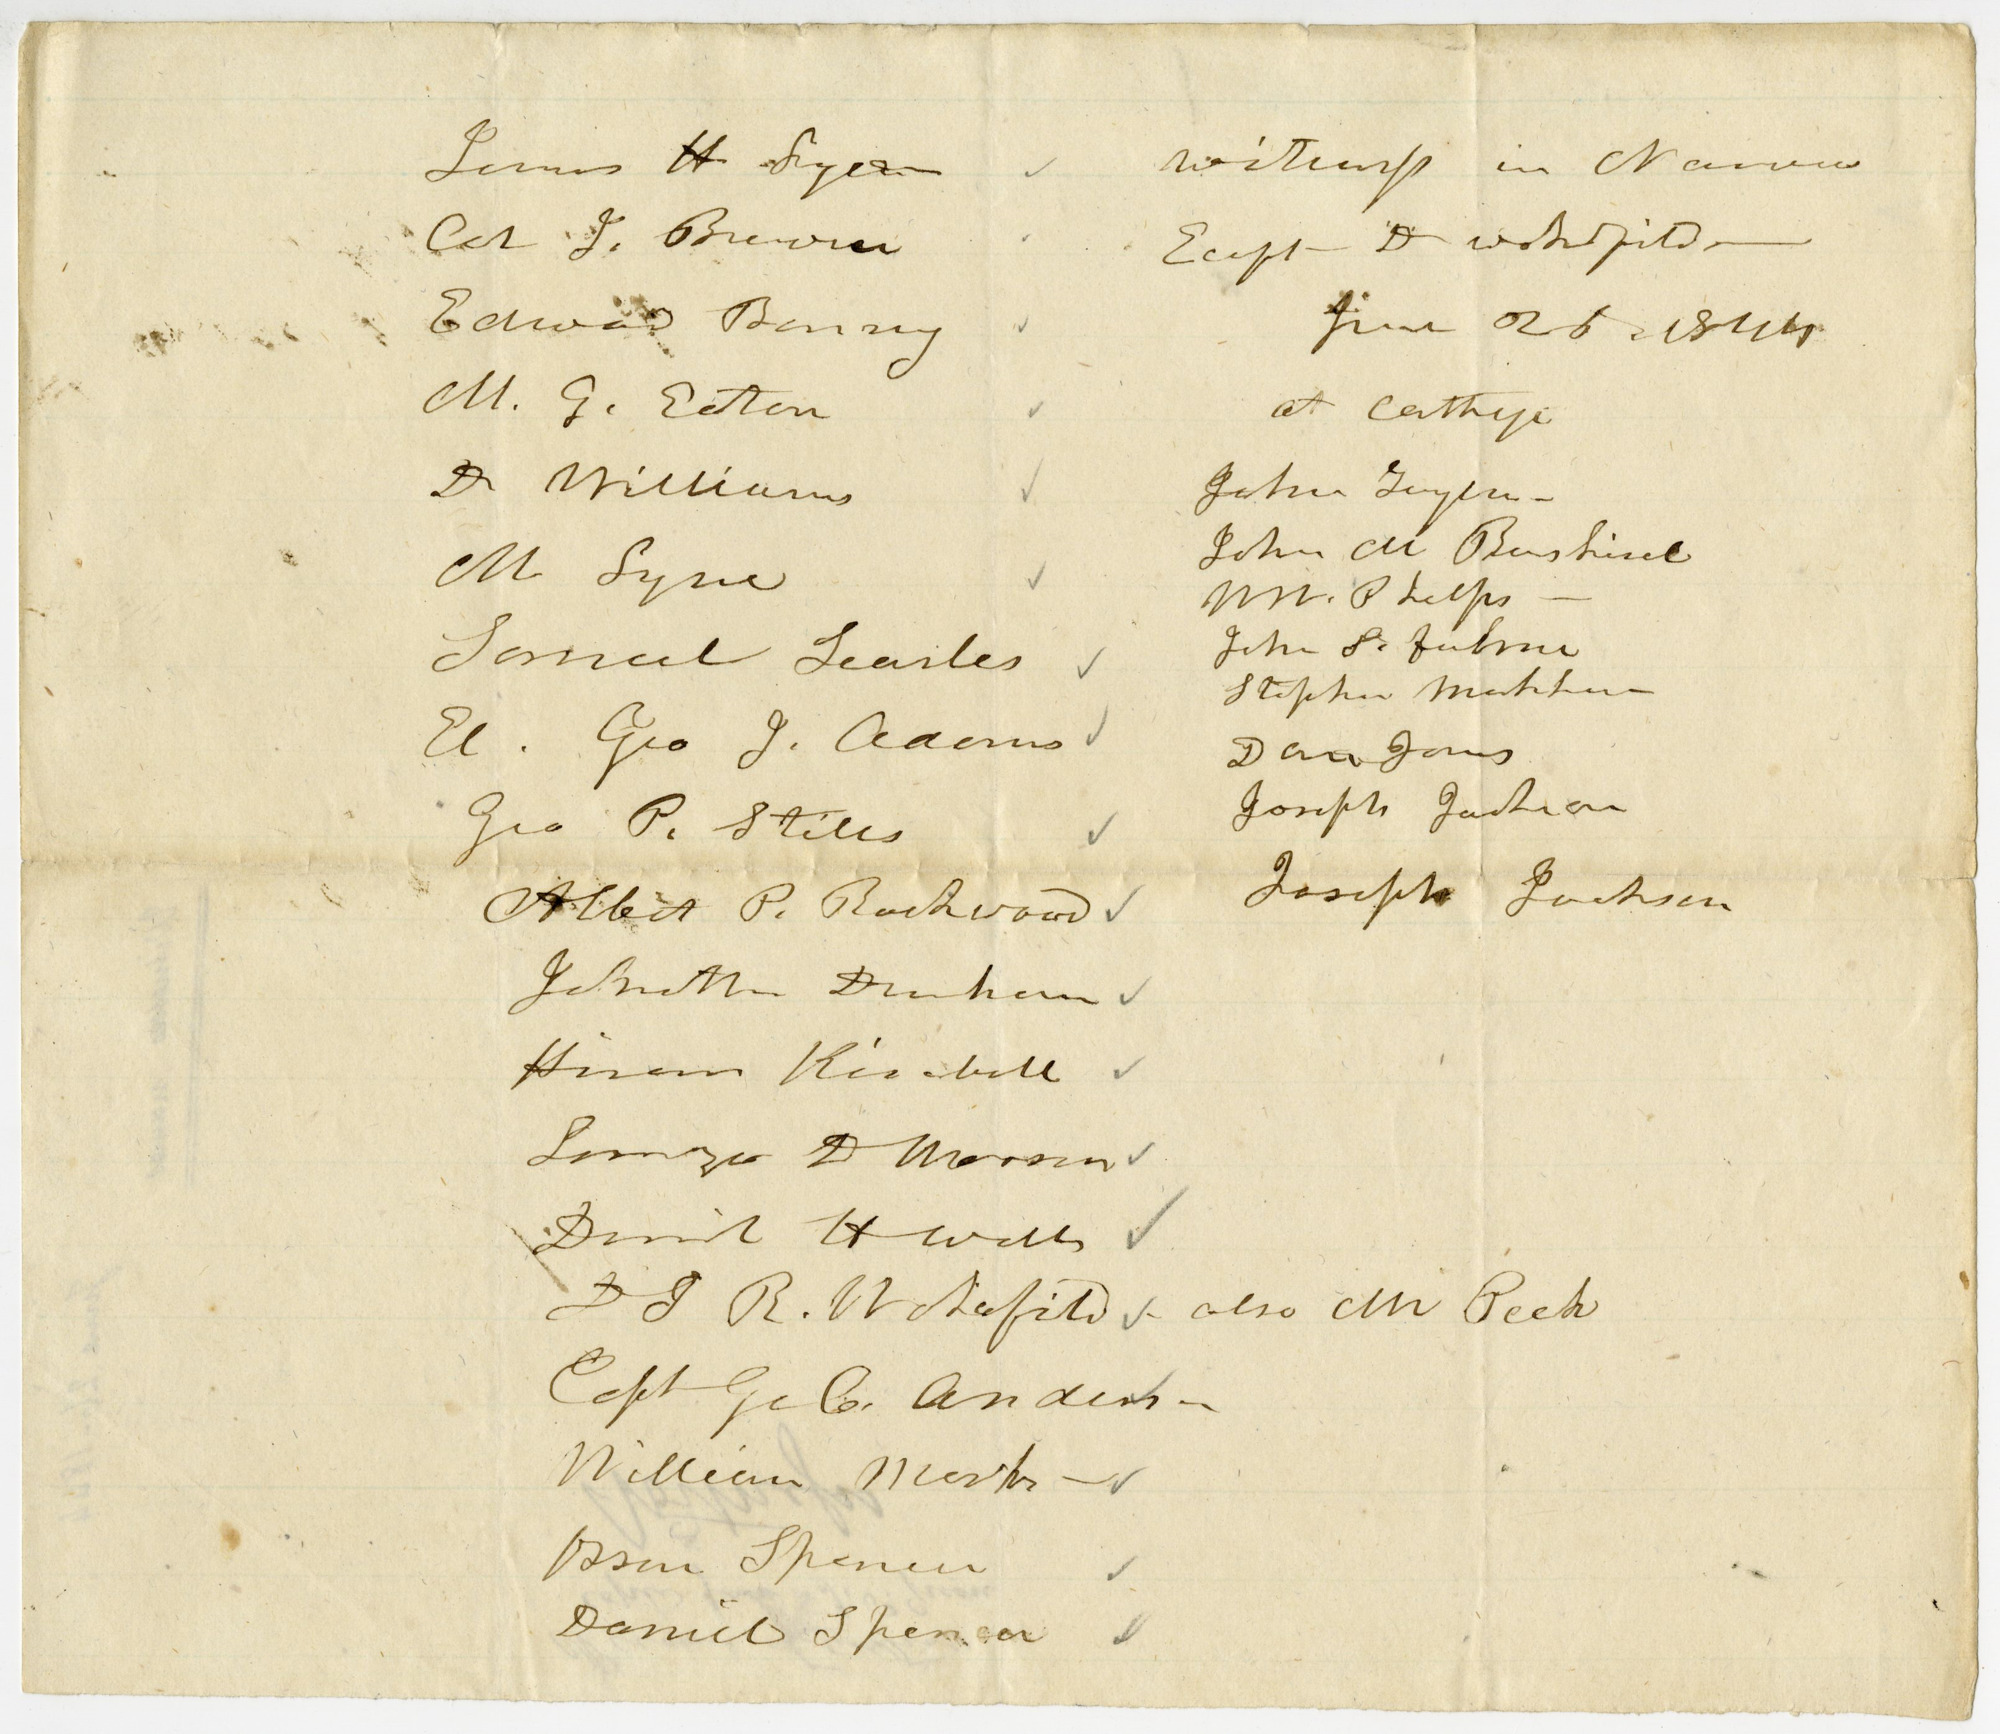 H
Col J. Brewer
Edward Bonny
M. G. Eaton
Dr Williams
M Syme
Samuel Searles
El. Geo J. Adams
Geo P. Stiles
Albert P. Rockwood
Dunham
Hiram Kimball
Lorenzo D Wasson
H Wells
D T R. Wakefild also Mr Peck
Capt G C. Anderson
William Marks
Orson Spencer
Daniel Spencer
witness in Nauvoo
Ecept Dr wakefild
June 26 1844
at Carthge
John
John M Bernhisel
W W. Phelps
John S. Fulmer
Stephen Markham
Dan Jones
Joseph Jackson
Joseph Jackson